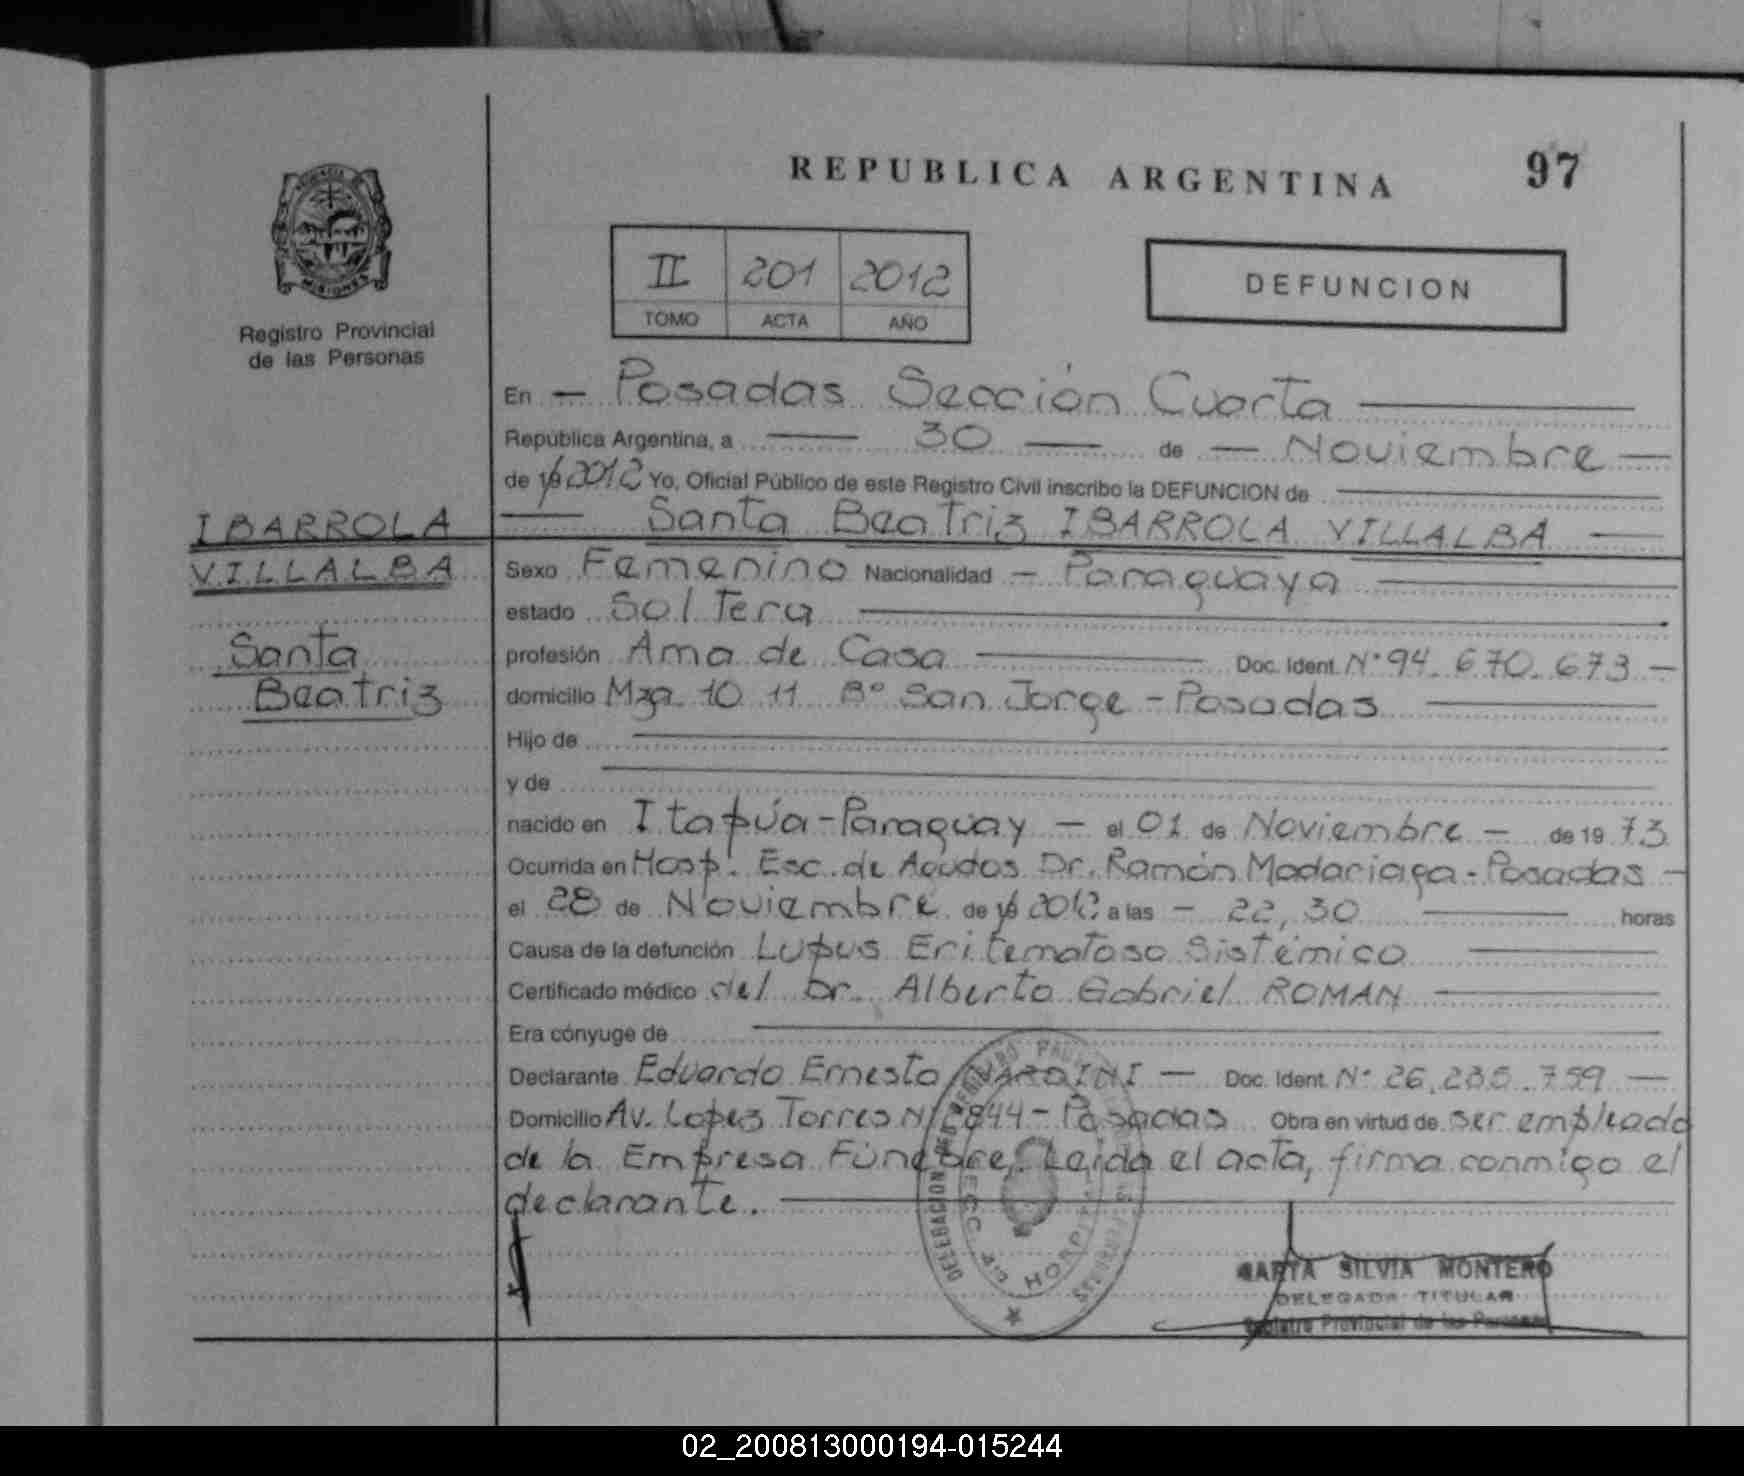 REPUBLICA ARGENTINA
97
MISIONES
Registro Provincial
de las Personas
II 201 2012
TOMO ACTA AÑO
DEFUNCION
En - Posadas Sección Cuarta
República Argentina, a 30 de - Noviembre -
de 19 2012 Yo, Oficial Público de este Registro Civil inscribo la DEFUNCION de
Santa Beatriz IBARROLA VILLALBA
IBARROLA
VILLALBA
Santa
Beatriz
Sexo Femenino Nacionalidad - Paraguaya
estado Soltera
profesión Ama de Casa Doc. Ident. N° 94.670.673 -
domicilio Mza 10 11 B° San Jorge - Posadas
Hijo de
y de
nacido en Itapúa-Paraguay - el 01 de Noviembre - de 19 73
Ocurrida en Hosp. Esc. de Agudos Dr. Ramón Madariaga - Posadas -
el 28 de Noviembre de 19 2012 a las - 22,30 horas
Causa de la defunción Lupus Eritematoso Sistémico
Certificado médico del Dr. Alberto Gabriel ROMAN
Era cónyuge de
Declarante Eduardo Ernesto - Doc. Ident. N° 26.235.759 -
Domicilio Av. Lopez Torres N° - Posadas Obra en virtud de ser empleado
de la Empresa Fúnebre. Leida el acta, firma conmigo el
declarante.
MARTA SILVIA MONTERO
DELEGADA TITULAR
Registro Provincial de las Personas
02_200813000194-015244